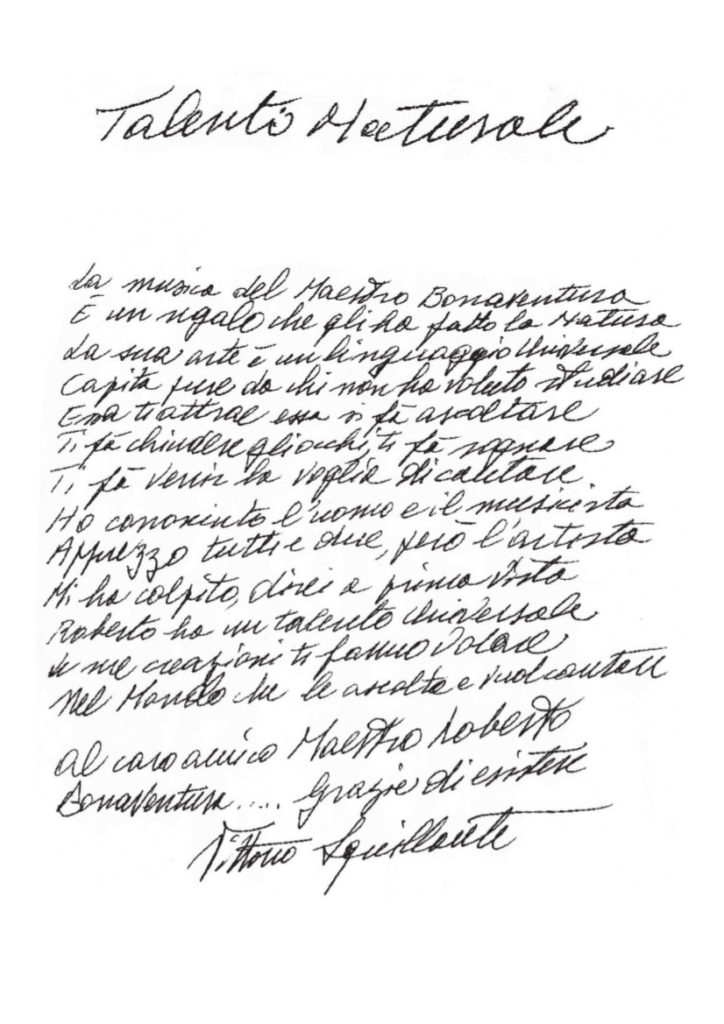 Talento Naturale
La musica del Maestro Bonaventura
È un regalo che gli ha fatto la Natura
La sua arte è un linguaggio Universale
Capita pure da chi non ha voluto studiare
Essa ti attrae essa si fà ascoltare
Ti fà chiudere gli occhi, ti fà sognare
Ti fà venir la voglia di cantare
Ho conosciuto l'uomo e il musicista
Apprezzo tutti e due, però l'artista
Mi ha colpito, direi a prima vista
Roberto ha un talento Universale
le sue creazioni ti fanno volare
Nel Mondo che le ascolta e vuol cantare
al caro amico Maestro Roberto
Bonaventura..... Grazie di esistere
Vittorio Squillante